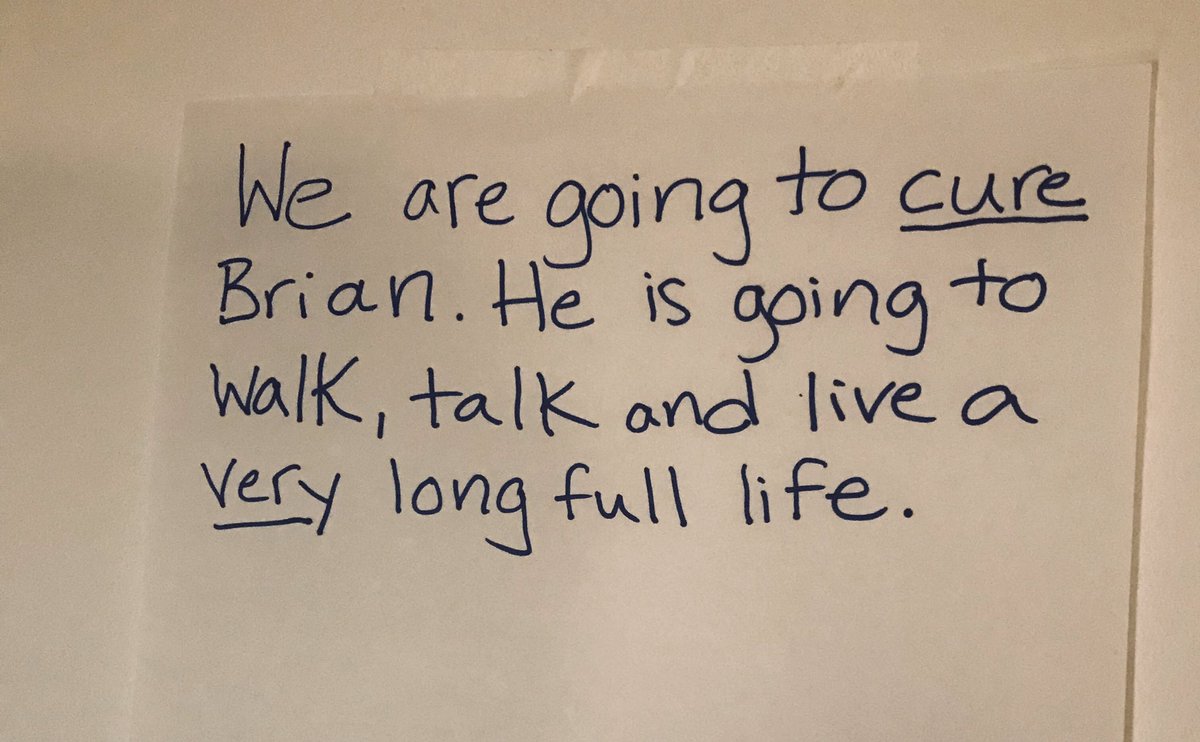 We are going to cure
Brian. He is going to
walk, talk and live a
very long full life.